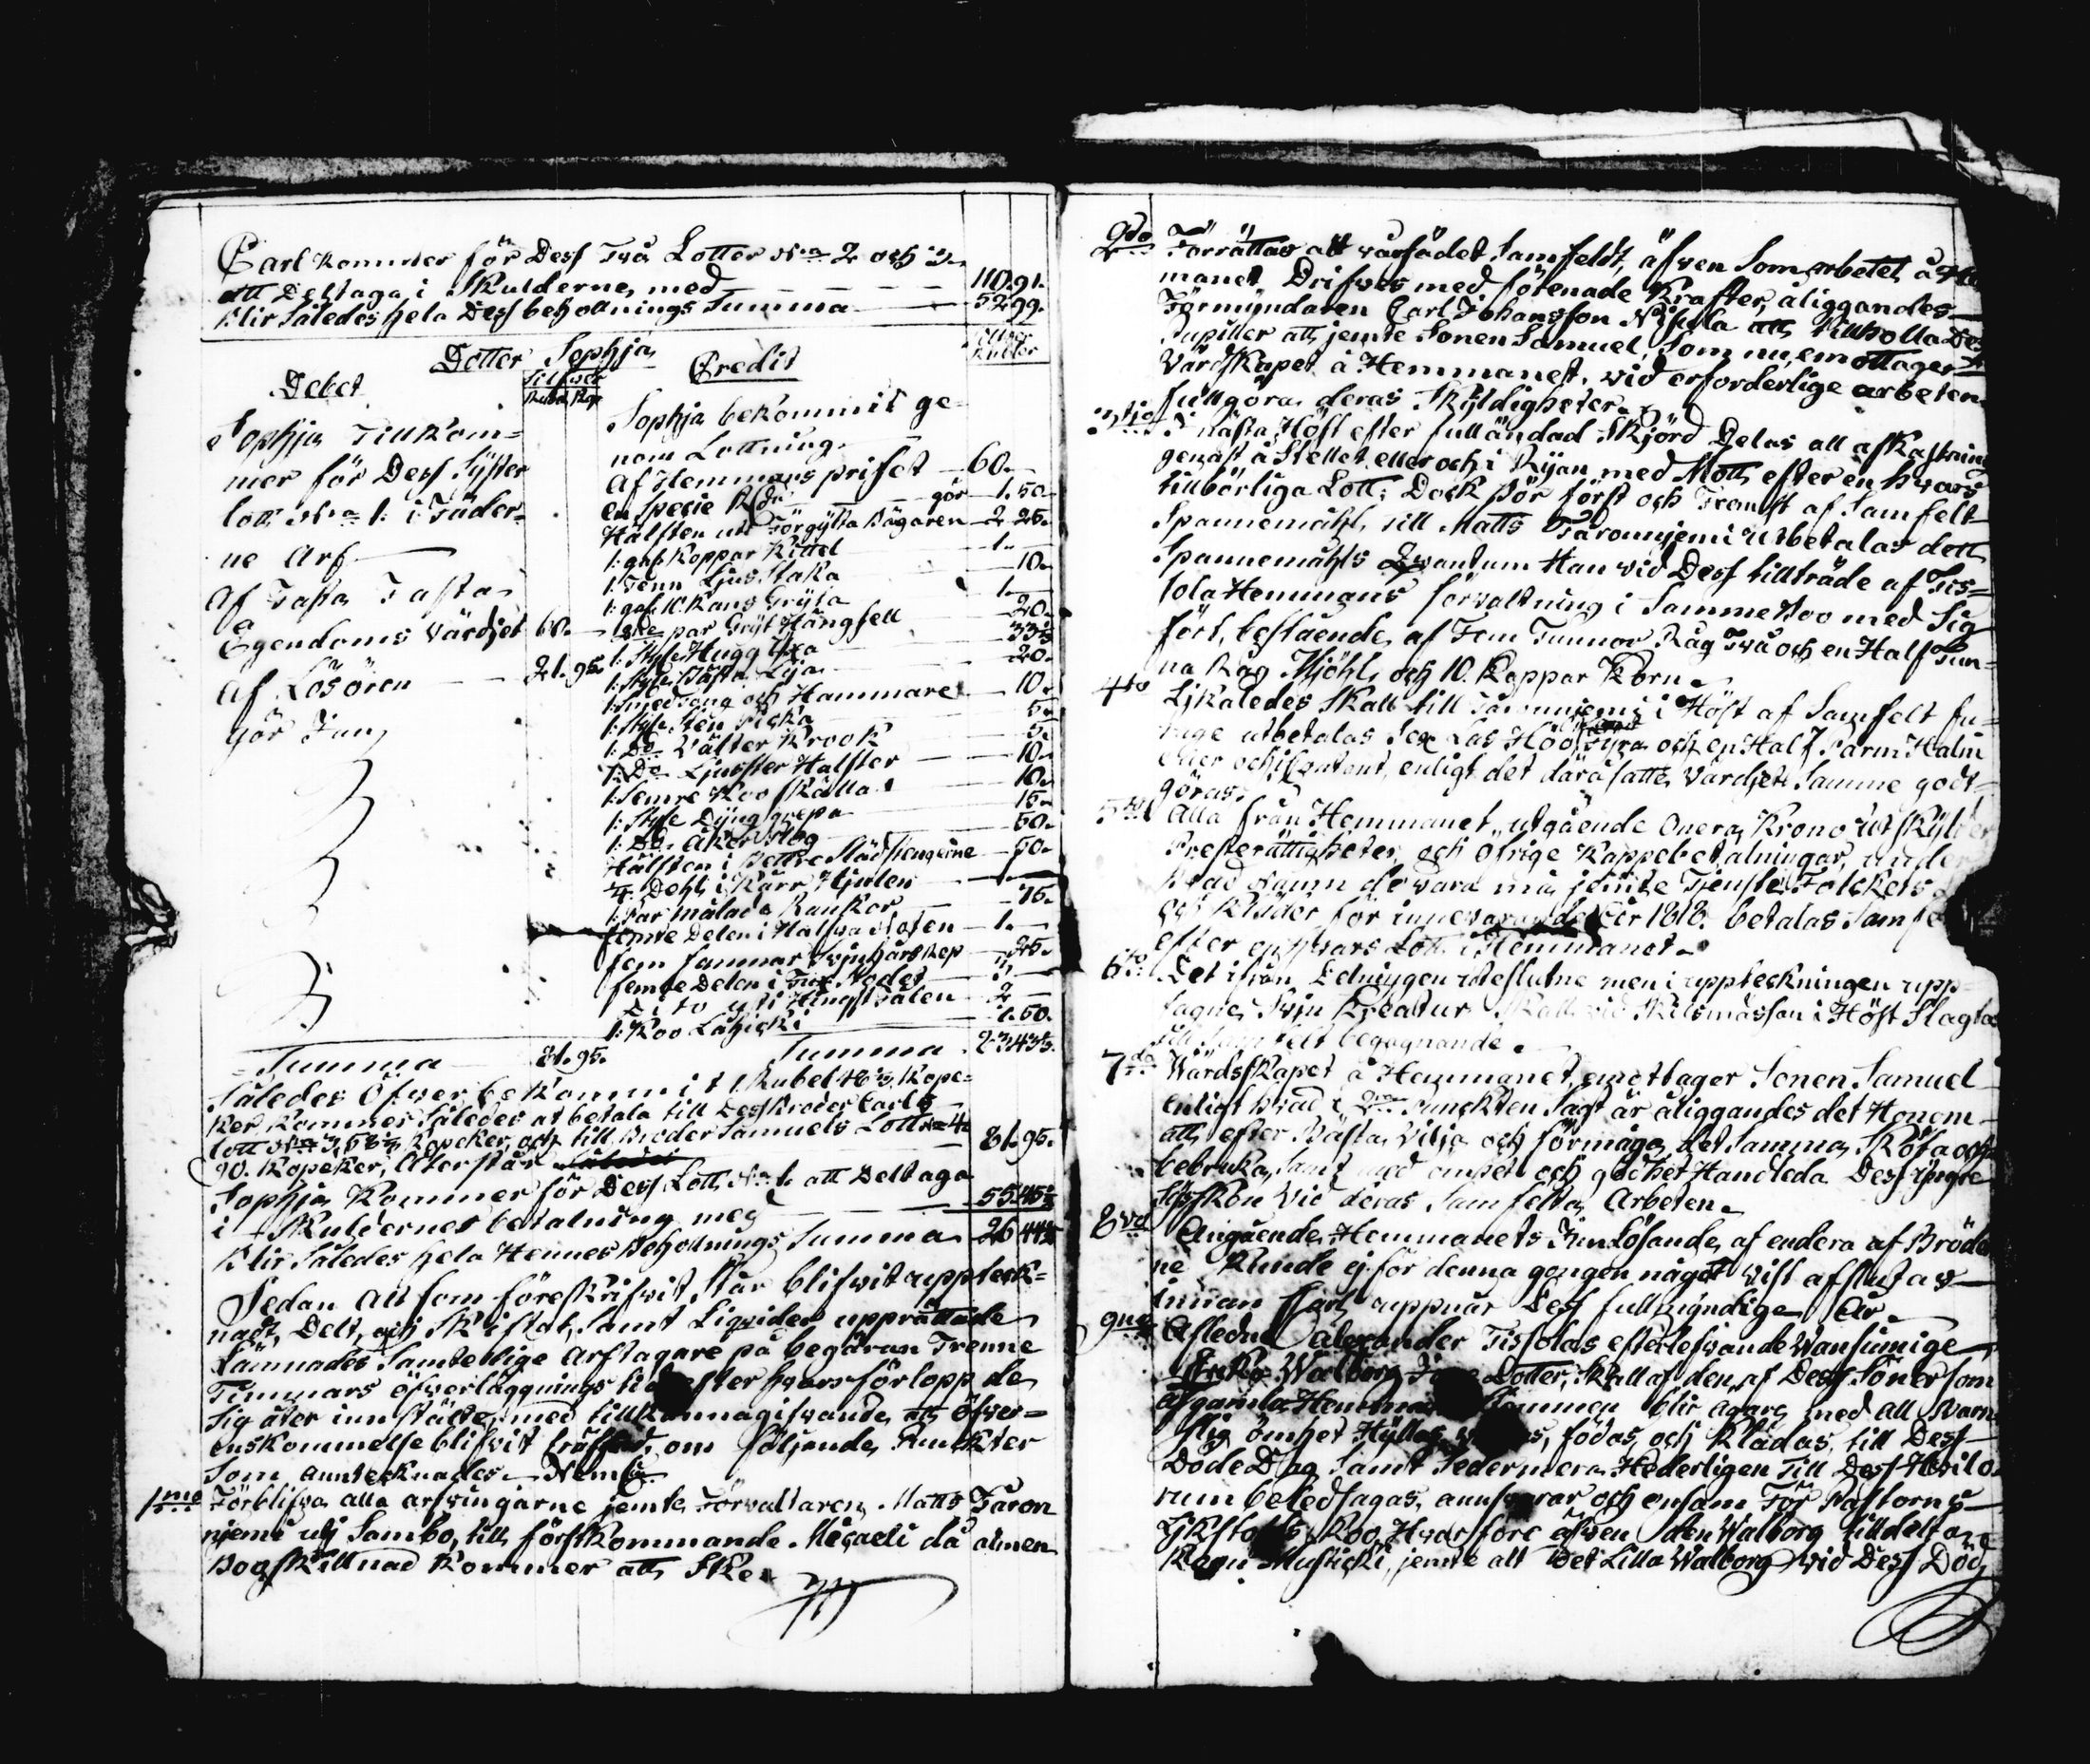 Carl kommer för Dess Två Lotter N:o 2 och 3.
att Deltaga i Skulderne, med 110.91.
Blir Således hela Dess behollnings Summa 52.99.
Dotter Sophja
Debet
Silfwer
Rubel Kop
Credit
Silfwer
Rubler
Sophja Tillkom=
mer för Dess Syster
lott N:o 1: i Fäder=
ne Arf
Af Fasta Fasta
Egendoms Värdjet 60.
Af Lösören 21.95.
gör Jun
Sophja bekommit ge=
nom Lottning.
Af Hemmans priset 60.
en Specie R:d gör 1.50.
Hälften uti Förgylta Bägaren 2.25.
1: gml Koppar Kittel 1.
1: Tenn Ljus Staka 10.
1: gml 10. Kans Gryta 1.
Ett par Gryt Hängsell 20.
1: Styk Hugg Yxa 33⅓
1: Styk Bästa Lija 20.
1: Smedtong och Hammare 10.
1: Styk Sten Picka 5.
1: Do Välter Krook 5.
1: Do Ljuster Halster 10.
1: Semre Koo Skälla 10.
1: Styk Dyng grepa 15.
1: Do Åker Plog 50.
Hälften i Bettre Slädstengerne 50.
4. Dehl i Kärr Hjulen
1: Par målade Rankor 75.
femte Delen i Halfva Noten 1.
fem famnar Svinhårs Rep 25.
femte Delen i Två Nodet 3.
Dito uti Hingst Fålen 2.
1: Koo Låhicki 7.50.
Summa 81.95.
Summa 83.43⅓.
Således Öfver bekommit 1. Rubel 48⅓ Kope=
ker Kommer Således at betala till Dess Broder Carls
lott N:o 3, 58⅓ Kopeker, och till Broder Samuels Lott N:o 4
90. Kopeker, Återstår 81.95.
Sophja Kommer för Dess Lott N:o 1. att Deltaga
i Skuldernes betalning med 55.45½
Blir Således hela Hennes Behollnings Summa 26.49½
Sedan Alt som föreskrifvit står blifvit uppteck=
nadt, Delt, och Skiftat, samt Liqvider upprättade
Lämnades Samtellige Arftagare på begäran Trenne
Timmars öfverläggnings tid efter hvars förlopp de
sig åter innstälte, med tillkännagifvande att Öfver=
enskommelse blifvit träffad, om följande Punkter
Som annteknades Neml.
1mo Förblifva alla arfvingarne jemte Förvaltaren Matts Taron
njemi uti Sambo, till förstkommande Micaeli då almen
Boskillnad kommer att Ske.
2do Förrättas alt vårsådet Samfeldt, äfven Som arbetet å He
manet Drifves med förenade Krafter, åliggandes
Förmyndaren Carl Johansson Nisula att tillholla Des
Pupiller att jemte Sonen Samuel, Som nu emottager
Värdskapet å Hemmanet, vid erforderlige arbeten
fullgöra deras Skyldigheter.
3tio I nästa Höst efter fulländad Skjörd Delas all afkastning
genast å Stellet eller och i Ryan, med Mott, efter en hvars
tillbörliga Lott; Dock bör först och Främst af Samfelt
Spannemåhl, till Matts Taronnjemi utbetalas dett
Spannemåhls Qwantum Han vid Dess tillträde af Tis=
sola Hemmans förvaltning i Samme Boo med Sig
fört, bestående af Fem Tunnor Råg Två och en Half Tun=
na Råg Mjöhl, och 10. Kappar Korn.
4to Likaledes Skall till Taronnjemi i Höst af Samfelt fu=
rage utbetalas Sex Las Höö, fyra och en Half Parm Halm
eller och i Contant, enligt det därå satte Värdjet Samme godt=
göras.
5to Alla från Hemmanet utgående Onera, Krono Utskylder
Presterättigheter, och öfrige Kappebetalningar, under
hvad namn de vara må, jemte Tjenste Folckets
och Kläder för innevarande År 1818. betalas Samfe
efter en hvars Lott i Hemmanet.
6to Det ifrån Delningen uteslutne men i uppteckningen upp=
tagne Svin Kreatur Skall vid Mikelsmässan i Höst Slagtas
till Samfelt begagnande.
7do Wärdskapet å Hemmanet emottager Sonen Samuel
enligt hvad i 2dra Punckten Sagt är åliggandes det Honom
att efter Bästa Vilja och förmåga, det Samma Sköta och
bebruka, Samt med ömhet och godhet Handleda Dess yngre
Syskon vid deras Samfelta Arbeten.
8vo Angående Hemmanets Innlösande, af endera af Bröder
ne Kunde ej för denna gongen något Vist afslutas
innan Carl uppnår Dess fullmyndige År.
9no Afledne Alexander Tissolas efterlefvande Wansinnige
Enka Walborg Dotter, Skall af den af Dess Söner som
af gamla Hemmanet blir ägare, med all Barn=
slig ömhet Hyllas, födas, och klädas, till Dess
Döde Dag Samt Sedermera Hederligen till Dess Hvilo=
rum beledsagas, annsvarar och ensam För Pastorns
Likstohls Koo, Hvarföre äfven den Walborg tilldelta
Kogn Mustikki, jemte alt Det Lilla Walborg vid Dess Död